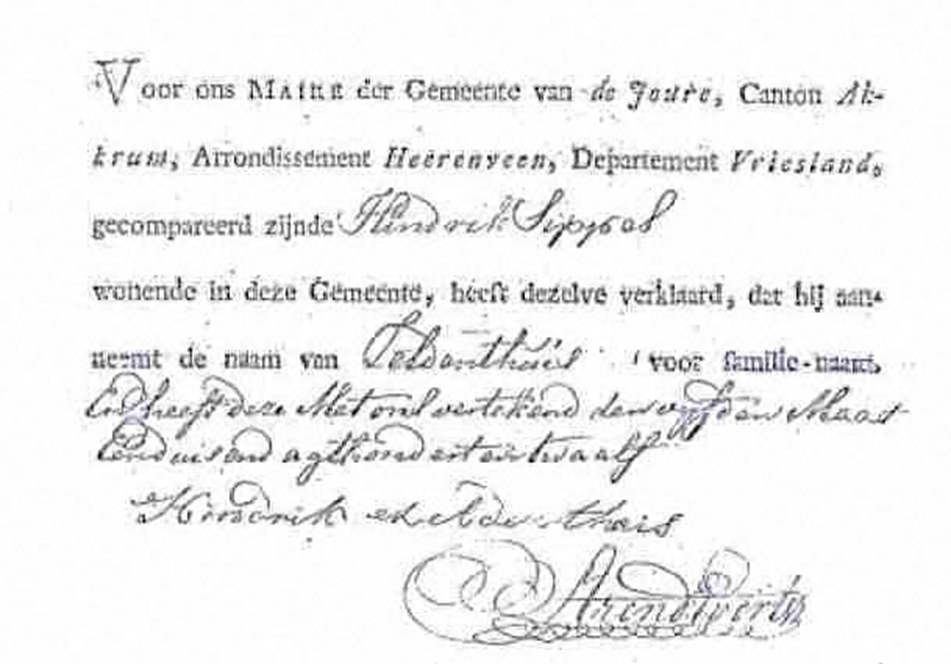 Voor ons MAIRE der Gemeente van de Joure, Canton Ak-
krum, Arrondissement Heerenveen, Departement Vriesland,
gecompareerd zijnde Hendrik
wonende in deze Gemeente, heeft dezelve verklaard, dat hij aan-
neemt de naam van voor familie-naam,
En heeft deze Met ons vertekend den vyfden Maart
Eenduisend agthondert en twaalf
Hendrik